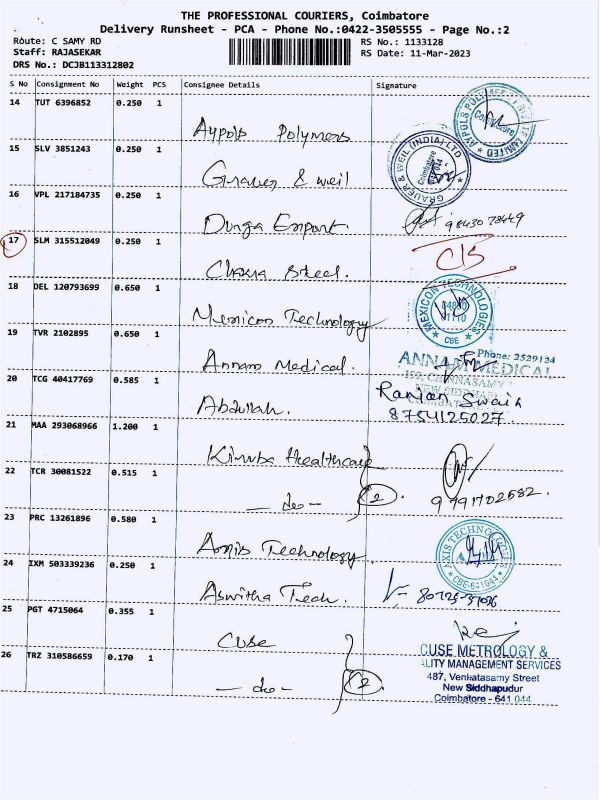 THE PROFESSIONAL COURIERS, Coimbatore
Delivery Runsheet - PCA - Phone No.:0422-3505555 - Page No.:2
Route: C SAMY RD RS No.: 1133128
Staff: RAJASEKAR RS Date: 11-Mar-2023
DRS No.: DCJB113312802
S No Consignment No Weight PCS Consignee Details Signature
14 TUT 6396852 0.250 1 Aypols Polymers
AYPOLS POLYMERS PRIVATE LIMITED Coimbatore
15 SLV 3851243 0.250 1 Grauer & Weil
GRAUER & WEIL (INDIA) LTD Coimbatore
16 VPL 217184735 0.250 1 Durga Export. 9843073449
17 SLM 315512049 0.250 1 Chakra Steel. C/S
18 DEL 120793699 0.650 1 Mexicon Technology
MEXICON TECHNOLOGIES CBE
19 TVR 2102895 0.650 1 Annam Medical.
Phone: 2529124
ANNAM MEDICAL
159, CHINNASAMY
NEW SIDDHA
20 TCG 40417769 0.585 1 Abdullah. Ranjan Swain
8754125027.
21 MAA 293068966 1.200 1 Kiruba Healthcare
22 TCR 30081522 0.515 1 - do - 2. 9791702582.
23 PRC 13261896 0.580 1 Axis Technology
AXIS TECHNOLOGIES CBE-641044
24 IXM 503339236 0.250 1 Aswitha Tech.
25 PGT 4715064 0.355 1 CUSE
26 TRZ 310586659 0.170 1 - do - 2
CUSE METROLOGY &
ALITY MANAGEMENT SERVICES
487, Venkatasamy Street
New Siddhapudur
Coimbatore - 641 044